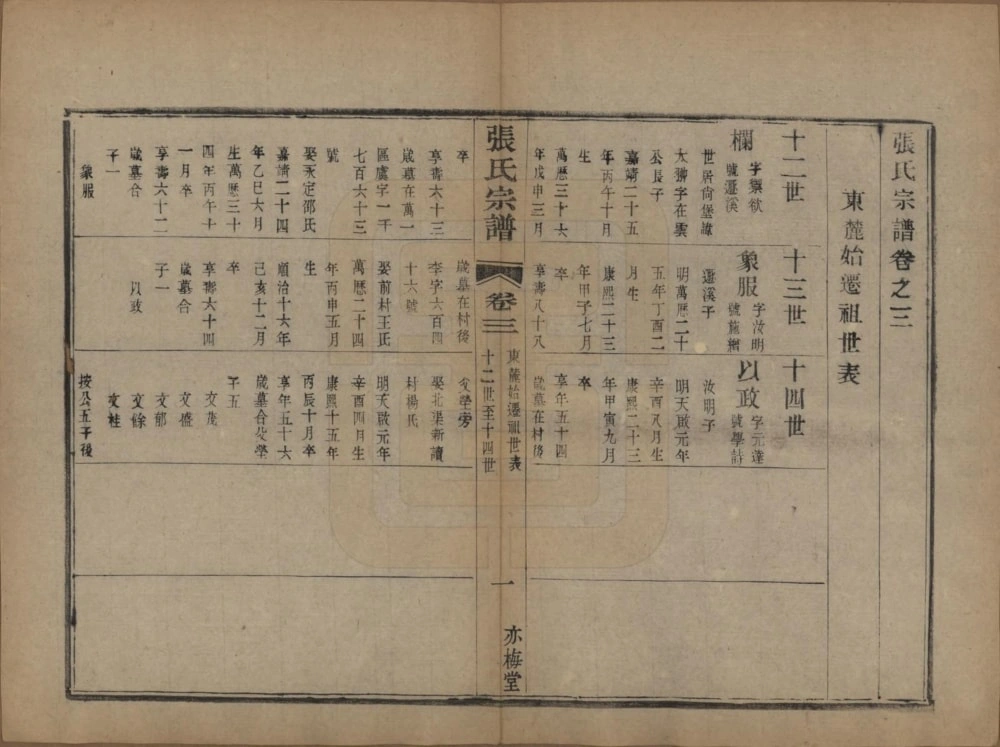 張氏宗譜卷之三
東麓始遷祖世表
十二世
十三世
十四世
欄
字景欲
號蓮溪
世居尙堡諱
大獅字在雲
公長子
嘉靖二十五
年丙午十月
生
萬歷三十六
年戊申三月
象服
字汝明
號施繪
蓮溪子
明萬歷二十
五年丁酉二
月生
康熙二十三
年甲子七月
卒
享壽八十八
以政
字元達
號學詩
汝明子
明天啟元年
辛酉八月生
康熙二十三
年甲寅九月
卒
享年五十四
歲墓在村後
張氏宗譜
卷三
東麓始遷祖世表
十二世至十四世
一
亦梅堂
卒
享壽六十三
歲墓在萬一
區虞字一千
七百六十三
號
娶天定邵氏
嘉靖二十四
年乙巳六月
生萬歷三十
四年丙午十
一月卒
享壽六十二
歲墓合
子一
象服
歲墓在村後
李字六百四
十六號
娶前村王氏
萬歷二十四
年丙申五月
生
順治十六年
己亥十二月
卒
享壽六十四
歲墓合
子一
以政
父塋旁
娶北渠新讀
村楊氏
明天啟元年
辛酉四月生
康熙十五年
丙辰十月卒
享年五十六
歲墓合父塋
子五
文茂
文盛
文郁
文餘
文桂
按公五子後